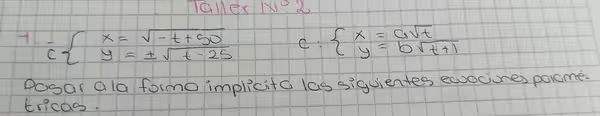 Taller N° 2
1. C { x = √-t+50    C: { x = a√t
y = ±√t-25    y = b√t+1
Pasar a la forma implicita las siguientes ecuaciones paramé-
tricas.